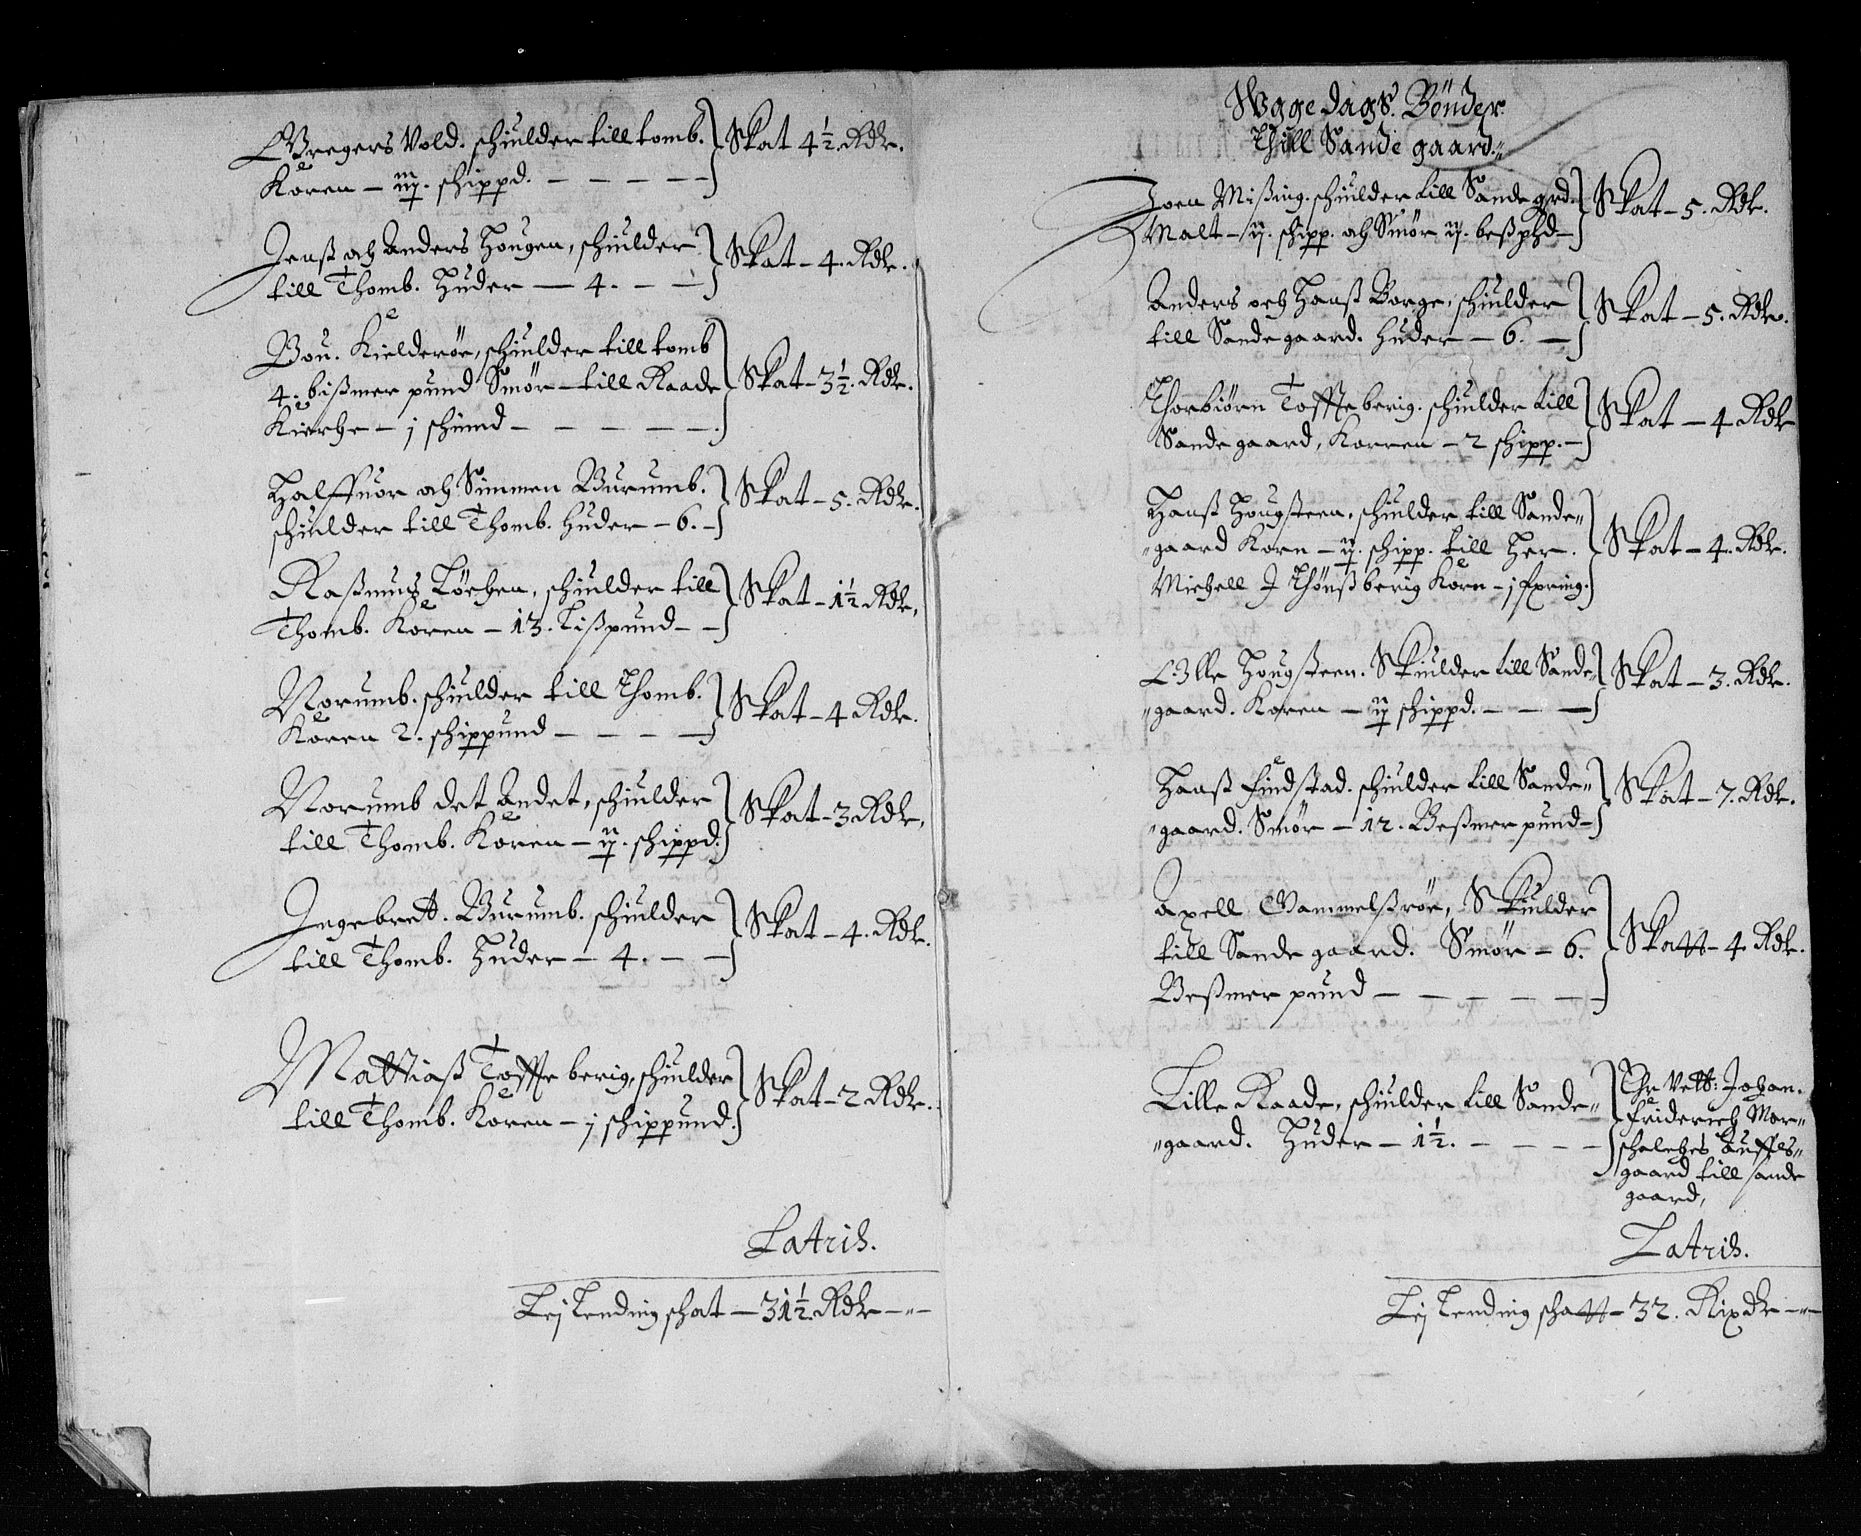 Gregers Vold. schiulder till tomb.
Koren – iij. schippd. – – – – – Skat 4½. Rdr.
Jenß och Anders Hougen, schiulder
till Thomb. Huder – 4. – – Skat – 4. Rdr.
Bou. Kielderöe, schiulder till tomb
4. bißmer pund Smör – till Raade
Kierche – j schimd – – – – – Skat – 3½. Rdr.
Halffuor och Simmen Burumb.
schiulder till Thomb. Huder – 6. – Skat – 5. Rdr.
Raßmus Löchen, schiulder till
Thomb. Koren – 13. Lißpund – – Skat – 1½ Rdr,
Norumb. schiulder till Thomb.
Koren 2. schippund – – – – Skat – 4 Rdr.
Norumb det Andet, schiulder
till Thomb. Koren – ij. schippd. Skat – 3 Rdr,
Ingebrett. Burumb. schiulder
till Thomb. Huder – 4. – – Skat – 4. Rdr.
Mattiaß Toffte berig, schiulder
till Thomb. Koren – j schippund. Skat – 2 Rdr.
Latris.
Lej Lending schat – 31½. Rdr – „ –
Wgge dags. Bönder.
Thill Sande gaard.„
Joen Mißing. schiulder till Sande grd.
Malt – ij. schipp. och Smör ij. beßphd – Skat – 5. Rdr.
Anders och Hanß Borge, schiulder
till Sande gaard. Huder – 6. – Skat – 5. Rdr.
Thorbiörn Toffte berig. schiulder till
Sande gaard, Korren – 2 schipp. – Skat – 4 Rdr
Hanß Hougsteen, schiulder till Sande„
„gaard Korn – ij. schipp. till Her.
Michell J Thönßberig Korn – j fxring. Skat – 4. Rdr.
Olle Hougsteen. Skiulder till Sande„
„gaard. Koren – ij schippd. – – – Skat – 3. Rdr.
Hanß Findstad. schiulder till Sande„
„gaard. Smör – 12. Beßmer pund – Skat – 7. Rdr.
Axell Gammelßröe, Skiulder
till Sande gaard. Smör – 6.
Beßmer pund – – – – – Skatt – 4 Rdr.
Lille Raade, schiulder till Sande„
„gaard. Huder – 1½. – – – –
Ehr Vell: Johan.
Friderich Mar„
schalches Auffls„
gaard till sande
gaard,
Latris.
Lej Lending schatt – 32. Rixdr – „ –